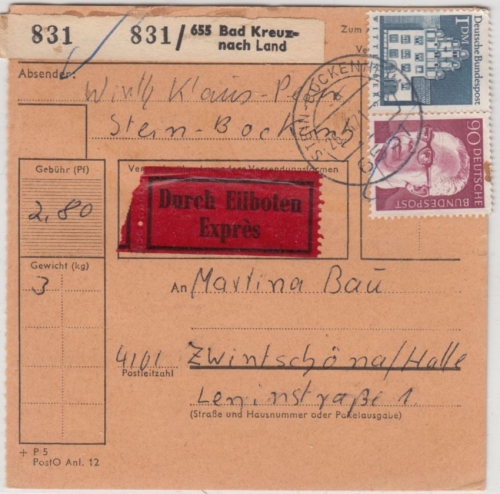 831 831/ 655 Bad Kreuz-
nach Land
Absender:
Wirth Klaus-Peter
Stein-Bocken
Zum
1 DM
Deutsche Bundespost
STEIN-BOCKENH
90
DEUTSCHE
BUNDESPOST
Gebühr (Pf)
2,80
Durch Eilboten
Exprès
Gewicht (kg)
3
An Martina Bau
4101 Zwintschöna/Halle
Postleitzahl
Leninstraße 1
(Straße und Hausnummer oder Paketausgabe)
+ P 5
PostO Anl. 12